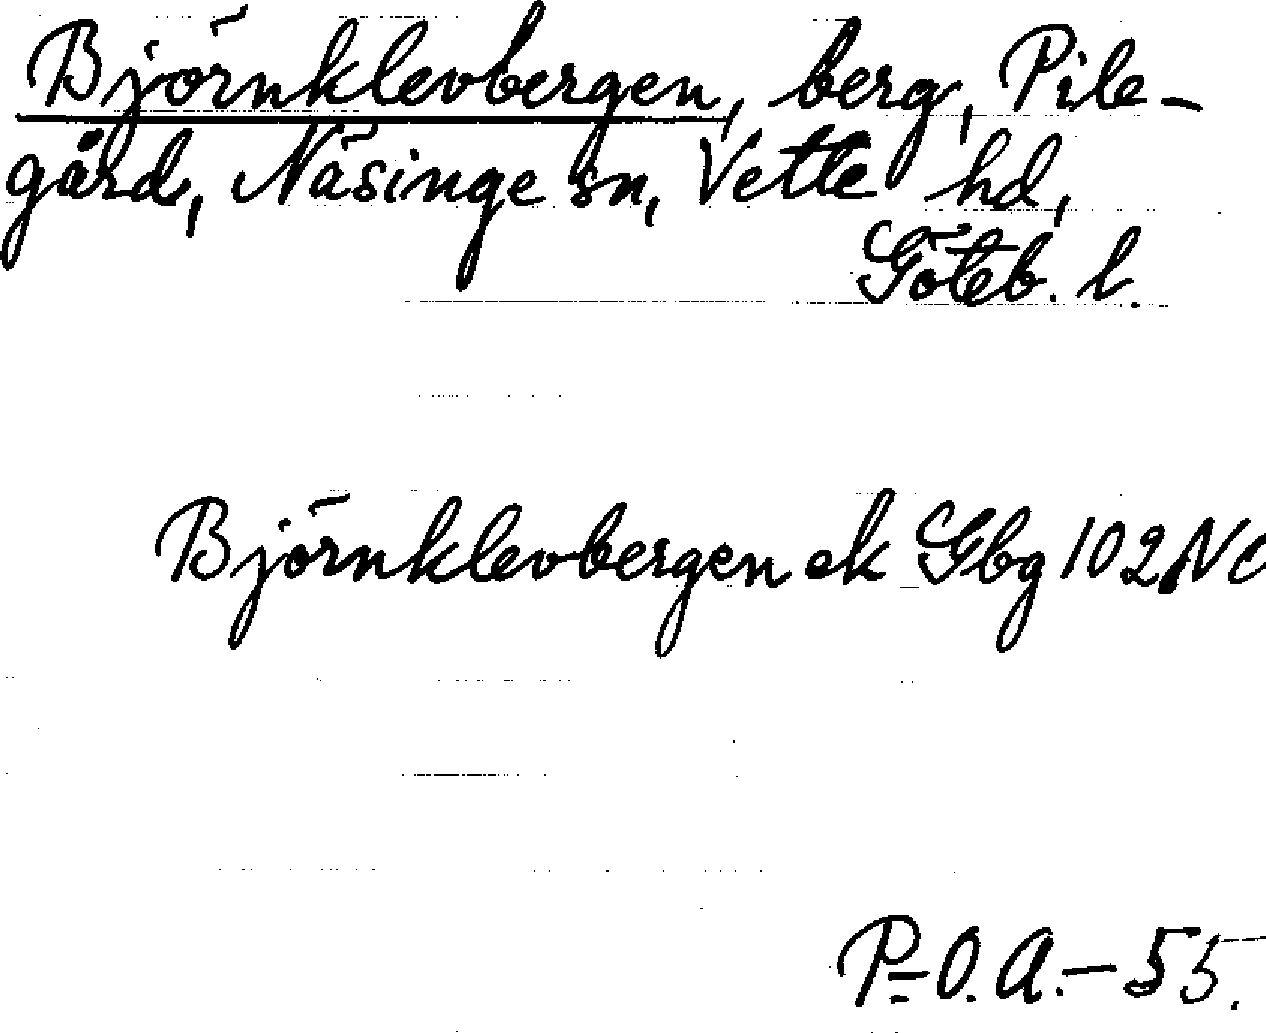 Björnklevbergen, berg, Pile-
gård, Näsinge sn, Vette hd,
Göteb. l.
Björnklevbergen ek Gbg 102 NV
P-O. A. - 55.